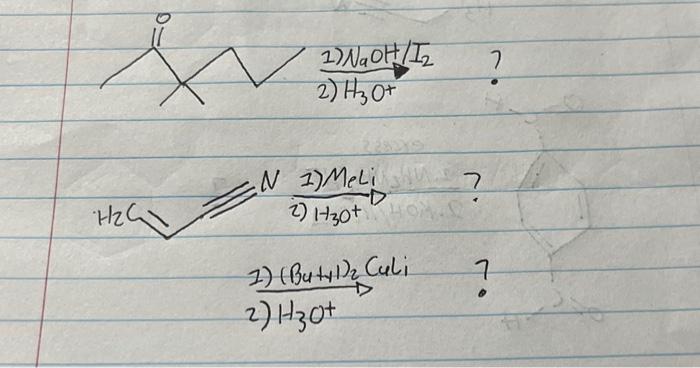 O
1) NaOH/I2 ?
2) H3O+
N 1) MeLi ?
H2C 2) H3O+
1) (Butyl)2 CuLi ?
2) H3O+